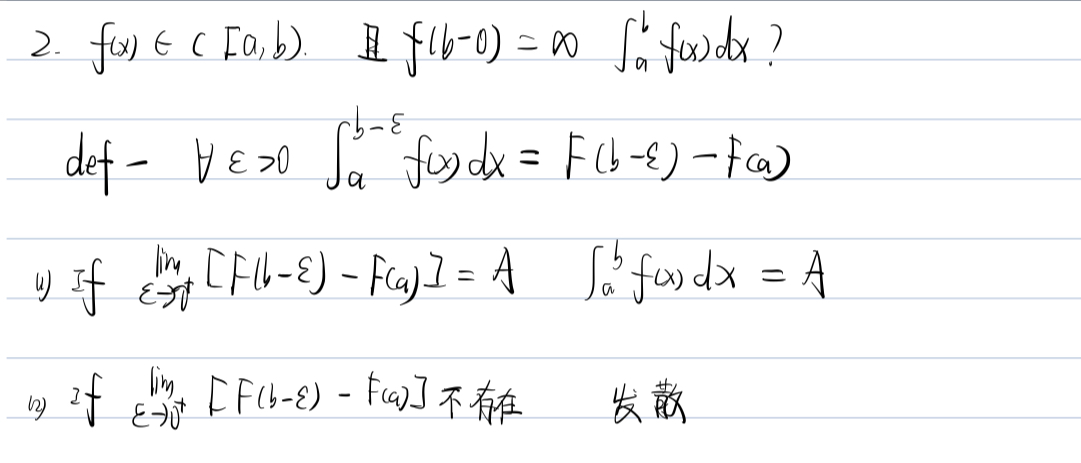 2. f(x) ∈ C [a,b). 且 f(b-0) = ∞ ∫ₐᵇ f(x)dx ?
def - ∀ ε>0 ∫ₐᵇ⁻ᵋ f(x)dx = F(b-ε) - F(a)
(1) If lim ε→0⁺ [F(b-ε) - F(a)] = A ∫ₐᵇ f(x)dx = A
(2) If lim ε→0⁺ [F(b-ε) - F(a)] 不存在 发散